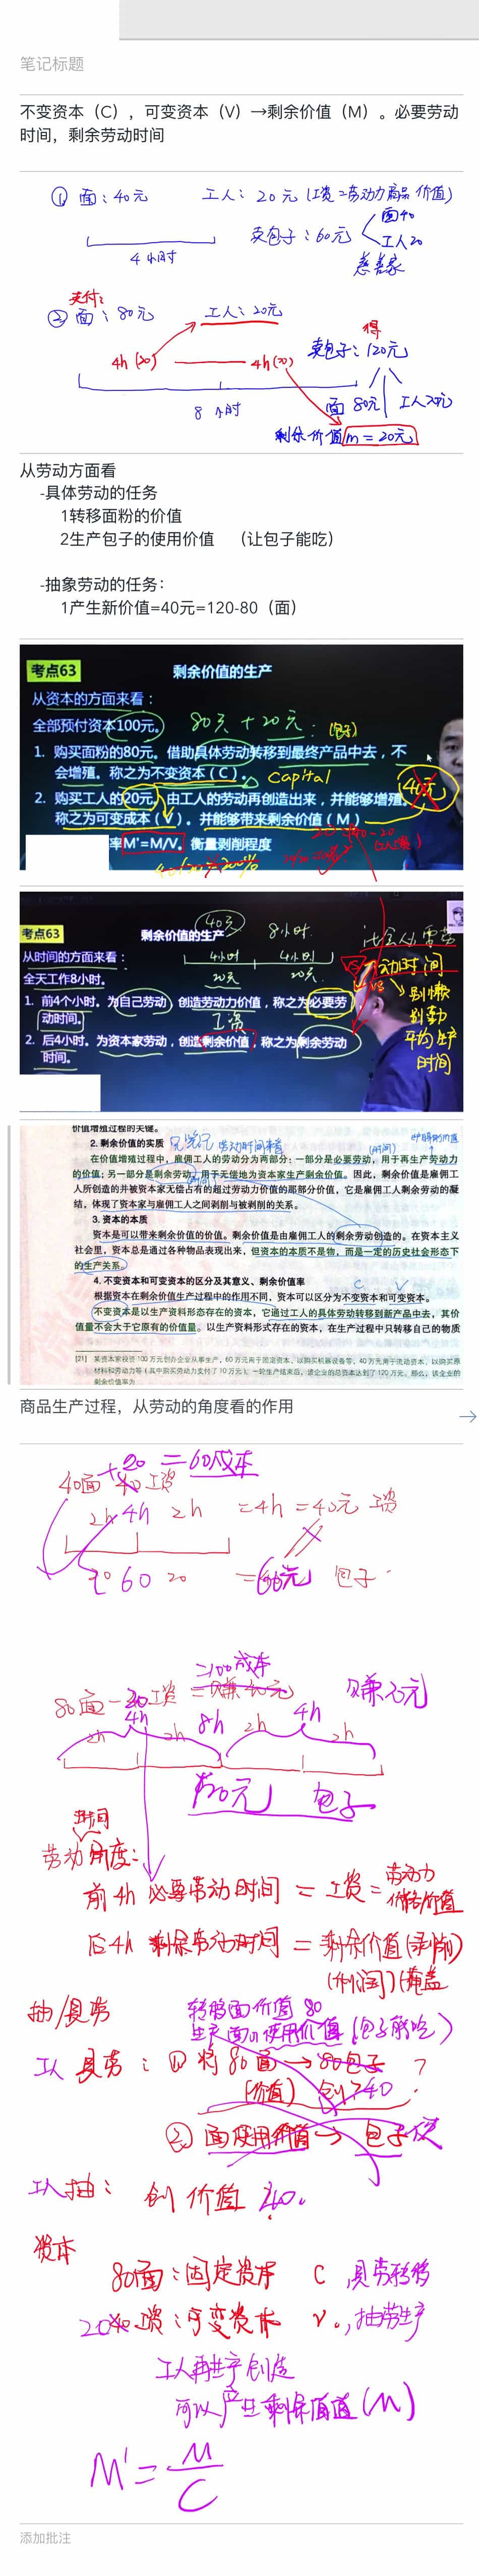 笔记标题
不变资本（C），可变资本（V）→剩余价值（M）。必要劳动
时间，剩余劳动时间
① 面：40元 工人：20元（工资=劳动力商品价值）
卖包子：60元 面40
工人20
4小时
慈善家
支付：
② 面：80元 工人：20元
得
4h(20) 4h(20) 卖包子：120元
8小时
面80元 工人20元
剩余价值 m=20元
从劳动方面看
-具体劳动的任务
1转移面粉的价值
2生产包子的使用价值 （让包子能吃）
-抽象劳动的任务：
1产生新价值=40元=120-80（面）
考点63 剩余价值的生产
从资本的方面来看：
全部预付资本100元。 80元+20元：(包子)
1. 购买面粉的80元。借助具体劳动转移到最终产品中去，不
会增殖。称之为不变资本（C）。 Capital
2. 购买工人的20元，由工人的劳动再创造出来，并能够增殖。 40元
称之为可变成本（V）。并能够带来剩余价值（M）
率M'=M/V。衡量剥削程度
考点63 剩余价值的生产 40元 8小时
从时间的方面来看： 4小时 4小时
全天工作8小时。 20元 20元
1. 前4个小时。为自己劳动，创造劳动力价值，称之为必要劳
动时间。 工资
2. 后4小时。为资本家劳动，创造剩余价值，称之为剩余劳动
时间。
社会必要劳
动时间
别懒
别勤
平均生产
时间
价值增殖过程的关键。
2. 剩余价值的实质 劳动时间来看
在价值增殖过程中，雇佣工人的劳动分为两部分：一部分是必要劳动，用于再生产劳动力
的价值；另一部分是剩余劳动，用于无偿地为资本家生产剩余价值。因此，剩余价值是雇佣工
人所创造的并被资本家无偿占有的超过劳动力价值的那部分价值，它是雇佣工人剩余劳动的凝
结，体现了资本家与雇佣工人之间剥削与被剥削的关系。
3. 资本的本质
资本是可以带来剩余价值的价值。剩余价值是由雇佣工人的剩余劳动创造的。在资本主义
社会里，资本总是通过各种物品表现出来，但资本的本质不是物，而是一定的历史社会形态下
的生产关系。
4. 不变资本和可变资本的区分及其意义、剩余价值率 C V
根据资本在剩余价值生产过程中的作用不同，资本可以区分为不变资本和可变资本。
不变资本是以生产资料形态存在的资本，它通过工人的具体劳动转移到新产品中去，其价
值量不会大于它原有的价值量。以生产资料形式存在的资本，在生产过程中只转移自己的物质
[21] 某资本家投资100万元创办企业从事生产，60万元用于固定资本，以购买机器设备等，40万元用于流动资本，以购买原
材料和劳动力等（其中购买劳动力支付了10万元）。一轮生产结束后，该企业的总资本达到了120万元。那么，该企业的
剩余价值率为
商品生产过程，从劳动的角度看的作用
+20 =60成本
40面 40工资
2h 4h 2h =4h =40元 工资
60 20 =60元 包子
=100成本
80面 20工资 =赚20元 赚20元
4h 8h 4h
2h 2h 2h 2h
120元 包子
时间
劳动角度：
前4h 必要劳动时间 = 工资 = 劳动力
价格价值
后4h 剩余劳动时间 = 剩余价值(剥削)
(利润)
抽/具劳 转移面价值80
生产面的使用价值(包子能吃)
工人具劳：① 将80面→80包子 ?
(价值) 创造40
② 面使用价值→包子使
工人抽：创价值40。
资本
80面：固定资本 C 具劳转移
20 40工资：可变资本 V。，抽劳生产
工人再生产创造
可以产生剩余价值(M)
M'=M/C
添加批注